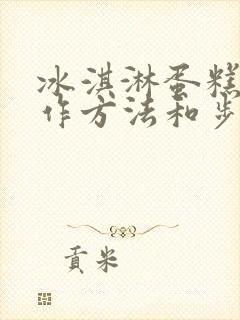 冰淇淋蛋糕
作方法和步
贡米